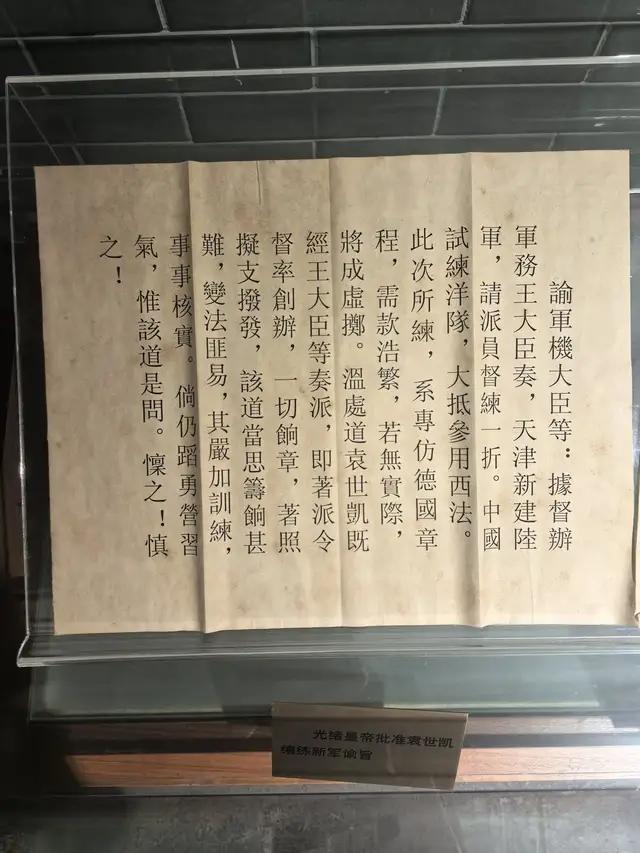 諭軍機大臣等：據督辦
軍務王大臣奏，天津新建陸
軍，請派員督練一折。中國
試練洋隊，大抵參用西法。
此次所練，系專仿德國章
程，需款浩繁，若無實際，
將成虛擲。溫處道袁世凱既
經王大臣等奏派，即著派令
督率創辦，一切餉章，著照
擬支撥發，該道當思籌餉甚
難，變法匪易，其嚴加訓練，
事事核實。倘仍蹈勇營習
氣，惟該道是問。懍之！慎
之！
光绪皇帝批准袁世凯
编练新军谕旨